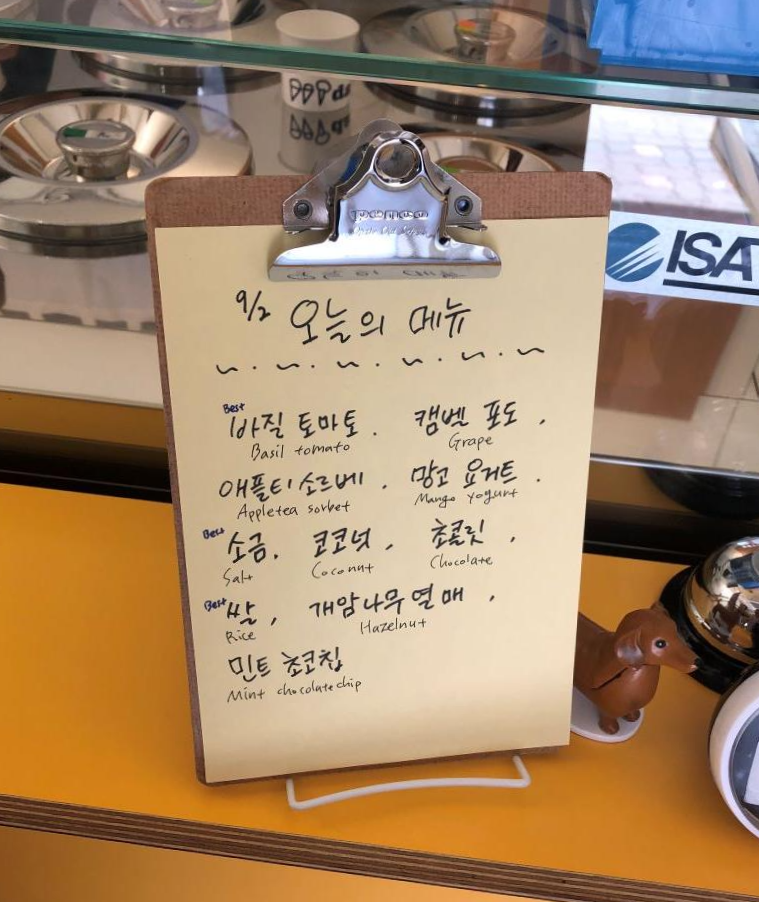 ISA
9/2 오늘의 메뉴
Best
바질 토마토 . 캠벨 포도 .
Basil tomato Grape
애플티 소르베 . 망고 요거트 .
Appletea sorbet Mango yogurt
Best
소금 . 코코넛 . 초콜릿 .
Salt Coconut Chocolate
Best
쌀 . 개암나무 열매 .
Rice Hazelnut
민트 초코칩
Mint chocolate chip